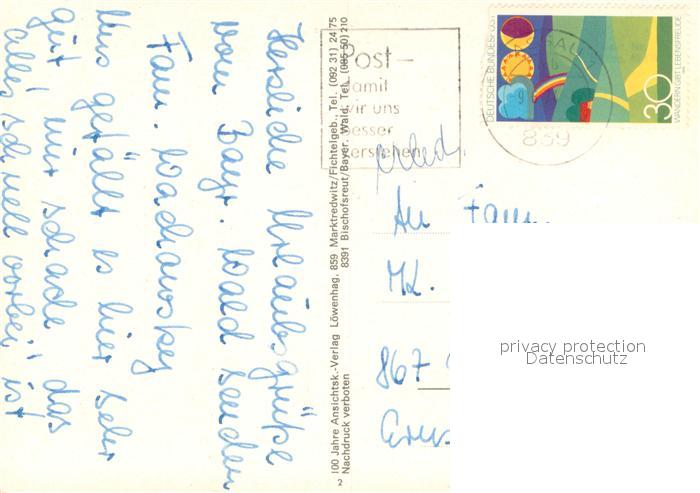 Herzliche Urlaubsgrüße
vom Bayr. Wald senden
Fam.
Uns gefällt es hier sehr
gut nur schade das
alles schnell vorbei ist
100 Jahre Ansichtsk.-Verlag Löwenhag, 859 Marktredwitz/Fichtelgeb., Tel. (092 31) 24 75
8391 Bischofsreut/Bayer. Wald, Tel. (085 50) 210
Nachdruck verboten
2
Post –
damit
wir uns
besser
verstehen
DEUTSCHE BUNDESPOST
30
WANDERN GIBT LEBENSFREUDE
839
An Fam.
867
privacy protection
Datenschutz